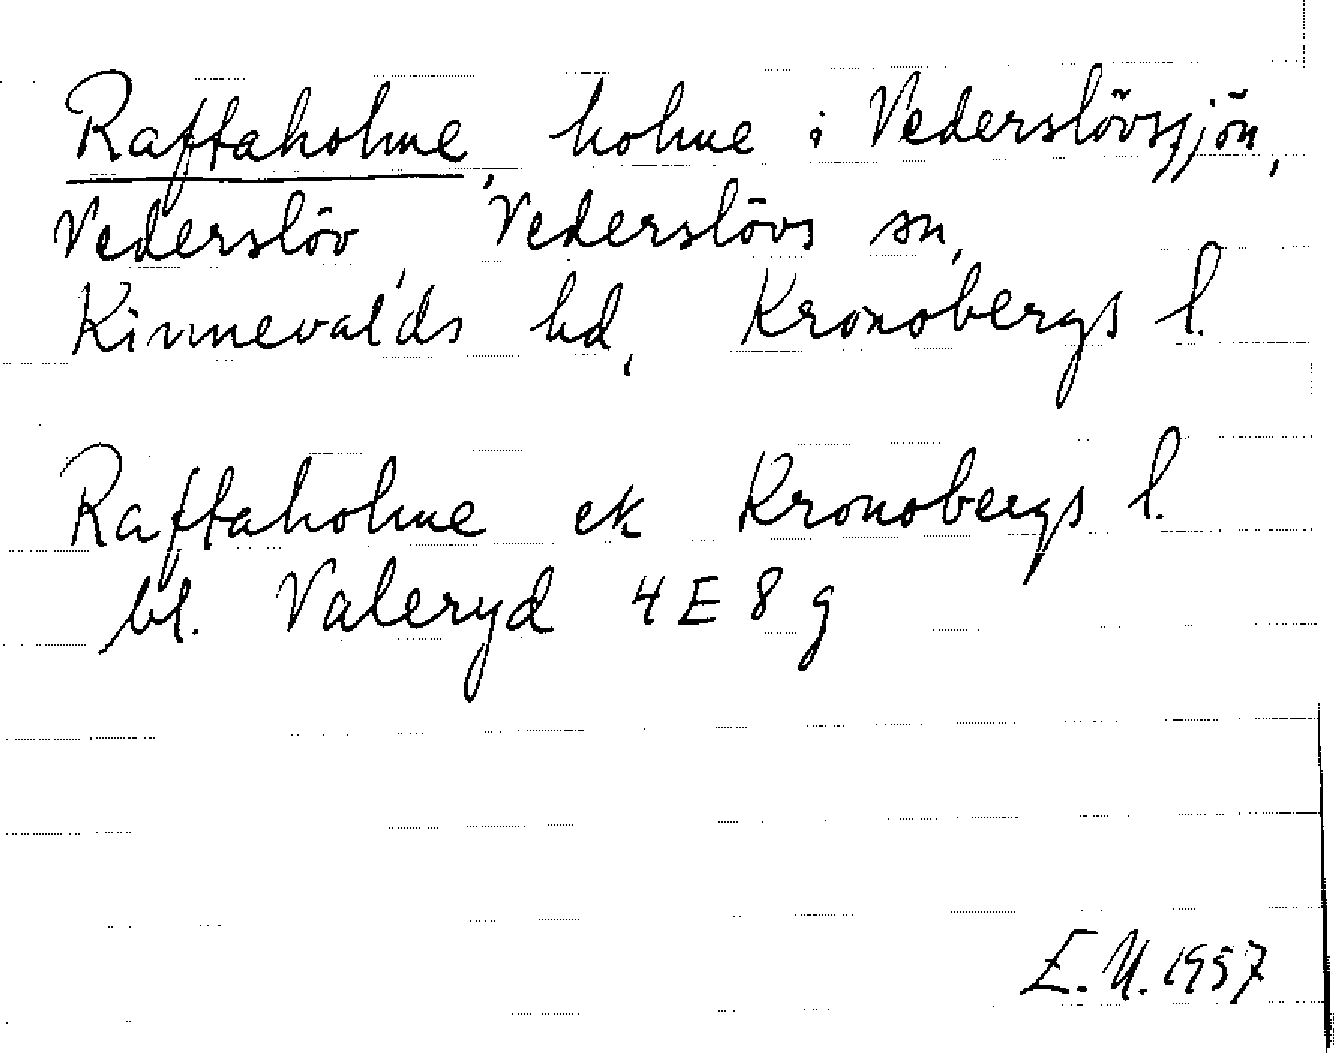 Raftaholme, holme i Vederslövssjön,
Vederslöv, Vederslövs sn,
Kinnevalds hd, Kronobergs l.
Raftaholme ek Kronobergs l.
bl. Valeryd 4E 8g
E.U. 1957